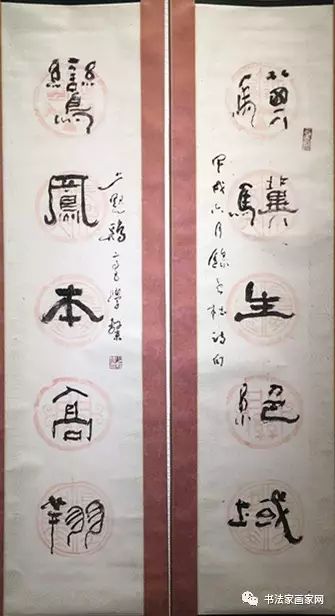 騏驥生絕域
甲戌六月錄老杜詩句
鸞鳳本高翔
書法家畫家网